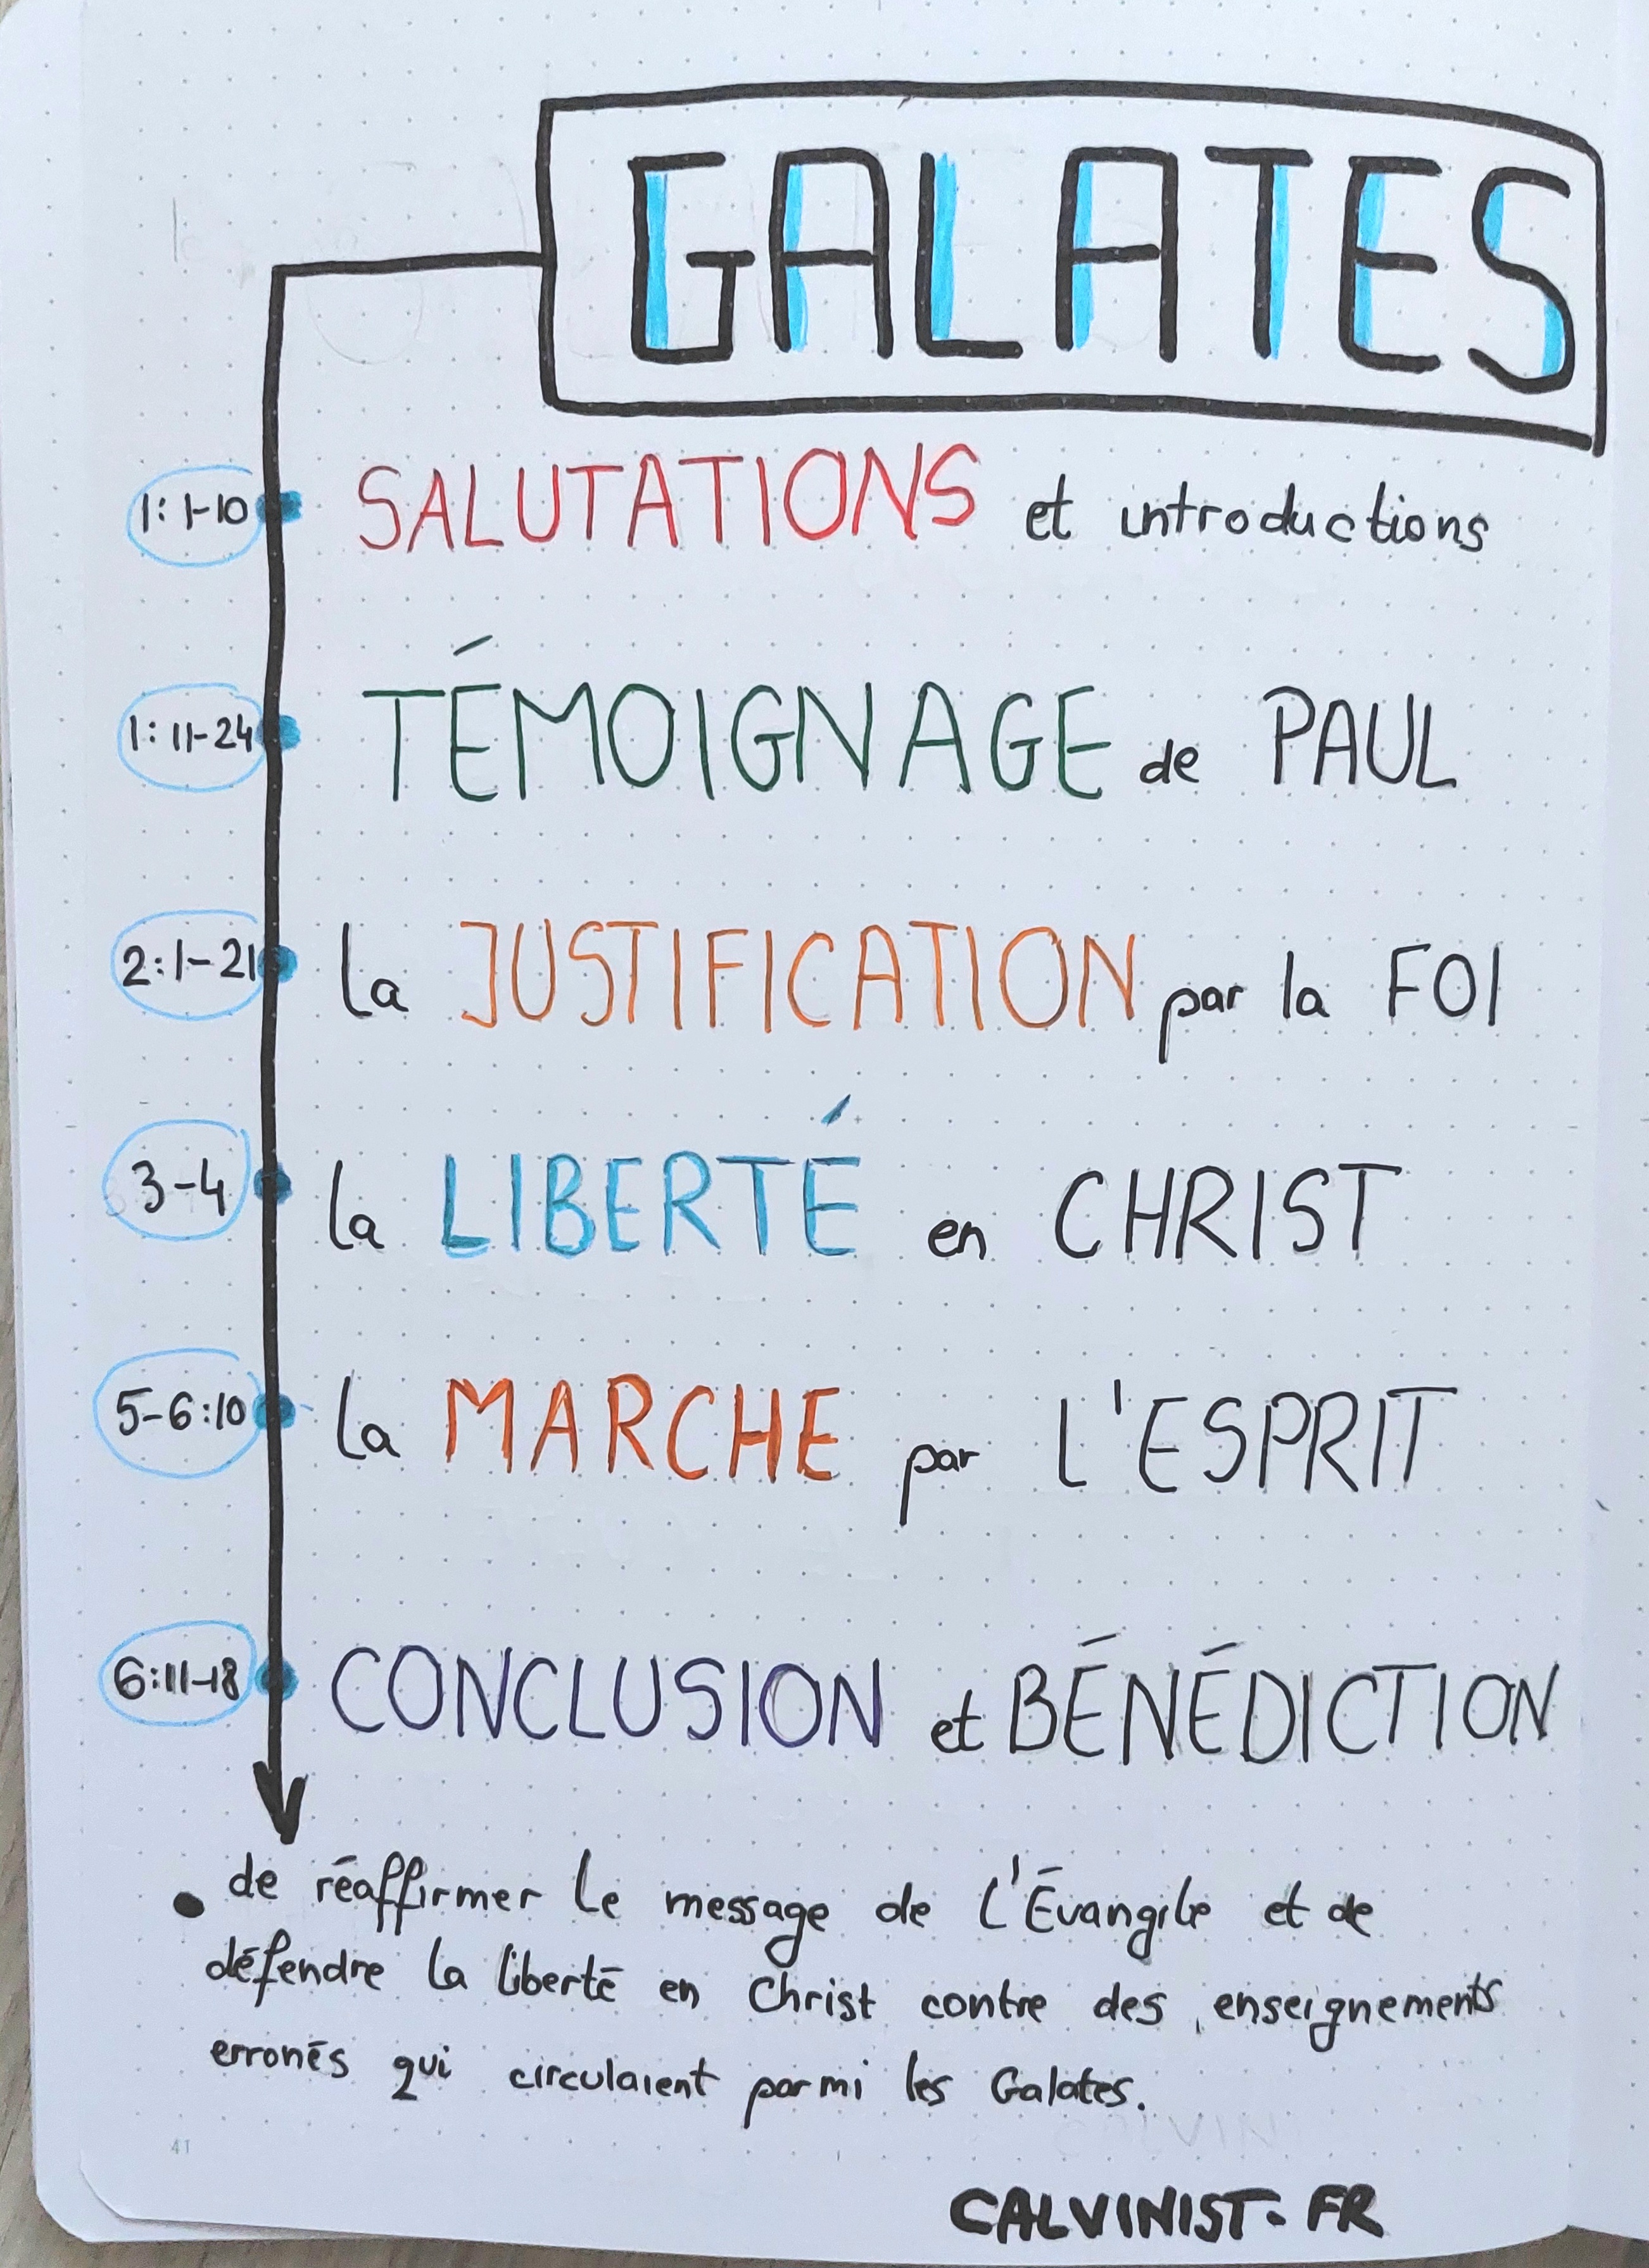 GALATES
1:1-10 SALUTATIONS et introductions
1:11-24 TÉMOIGNAGE de PAUL
2:1-21 la JUSTIFICATION par la FOI
3-4 la LIBERTÉ en CHRIST
5-6:10 la MARCHE par L'ESPRIT
6:11-18 CONCLUSION et BÉNÉDICTION
• de réaffirmer le message de l'Évangile et de
défendre la liberté en Christ contre des enseignements
erronés qui circulaient parmi les Galates.
41
CALVINIST.FR